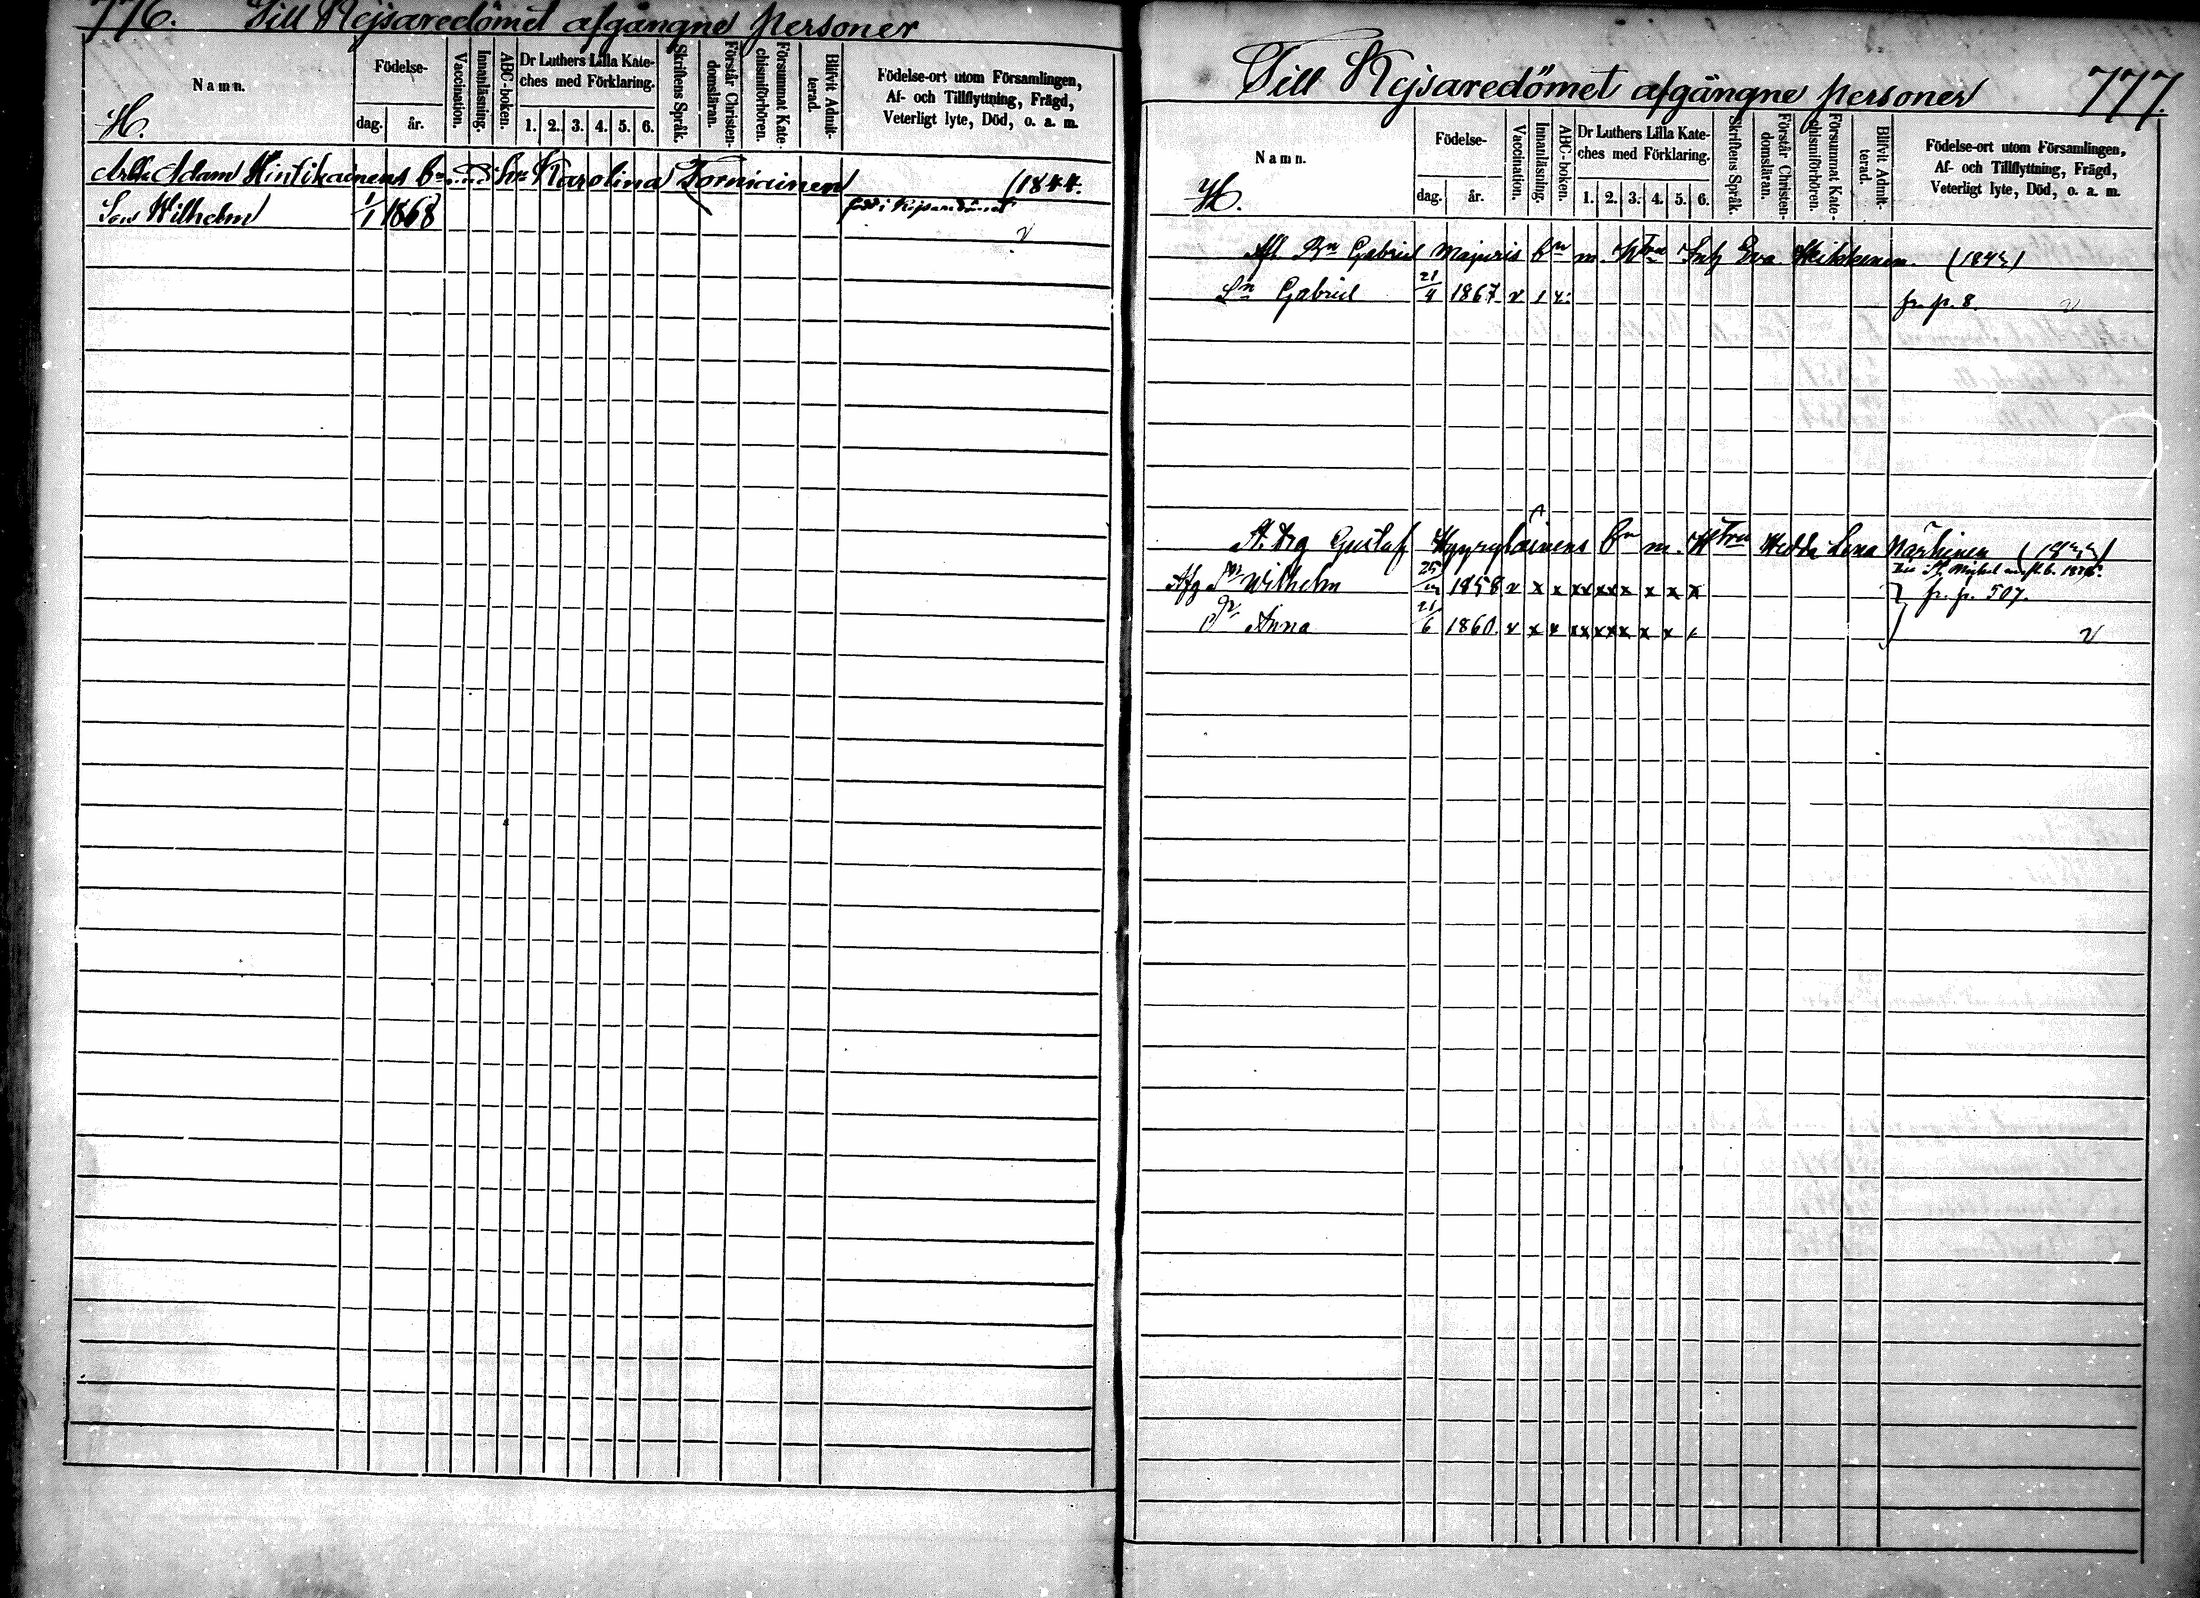 776. Till Kejsaredömet afgångne personer
Namn.
H.
Födelse-
dag. år.
Vaccination.
Innanläsning.
ABC-boken.
Dr Luthers Lilla Kate-
ches med Förklaring.
1. 2. 3. 4. 5. 6.
Skriftens Språk.
Förstår Christen-
domsläran.
Försummat Kate-
chismiförhören.
Blifvit Admit-
terad.
Födelse-ort utom Församlingen,
Af- och Tillflyttning, Frägd,
Veterligt lyte, Död, o. a. m.
Adam Hintikainens bn Karolina Torniainen (1844.
Son Wilhelm 1/1 1868 född i Kejsaredömet
v
Till Kejsaredömet afgångne personer 777.
Namn.
H.
Födelse-
dag. år.
Vaccination.
Innanläsning.
ABC-boken.
Dr Luthers Lilla Kate-
ches med Förklaring.
1. 2. 3. 4. 5. 6.
Skriftens Språk.
Förstår Christen-
domsläran.
Försummat Kate-
chismiförhören.
Blifvit Admit-
terad.
Födelse-ort utom Församlingen,
Af- och Tillflyttning, Frägd,
Veterligt lyte, Död, o. a. m.
Afl. Bn Gabriel Majuris bn m. Htru Eva Heikkinen.
Sn Gabriel 21/4 1867 v fr. p. 8. v
Gustaf Hyyryläinens bn m. Htru Hedda Lena
Wilhelm 25 1858 v x x x x x x x x x fr. p. 507.
Dr Anna 21/6 1860. v x x x x x x x x v